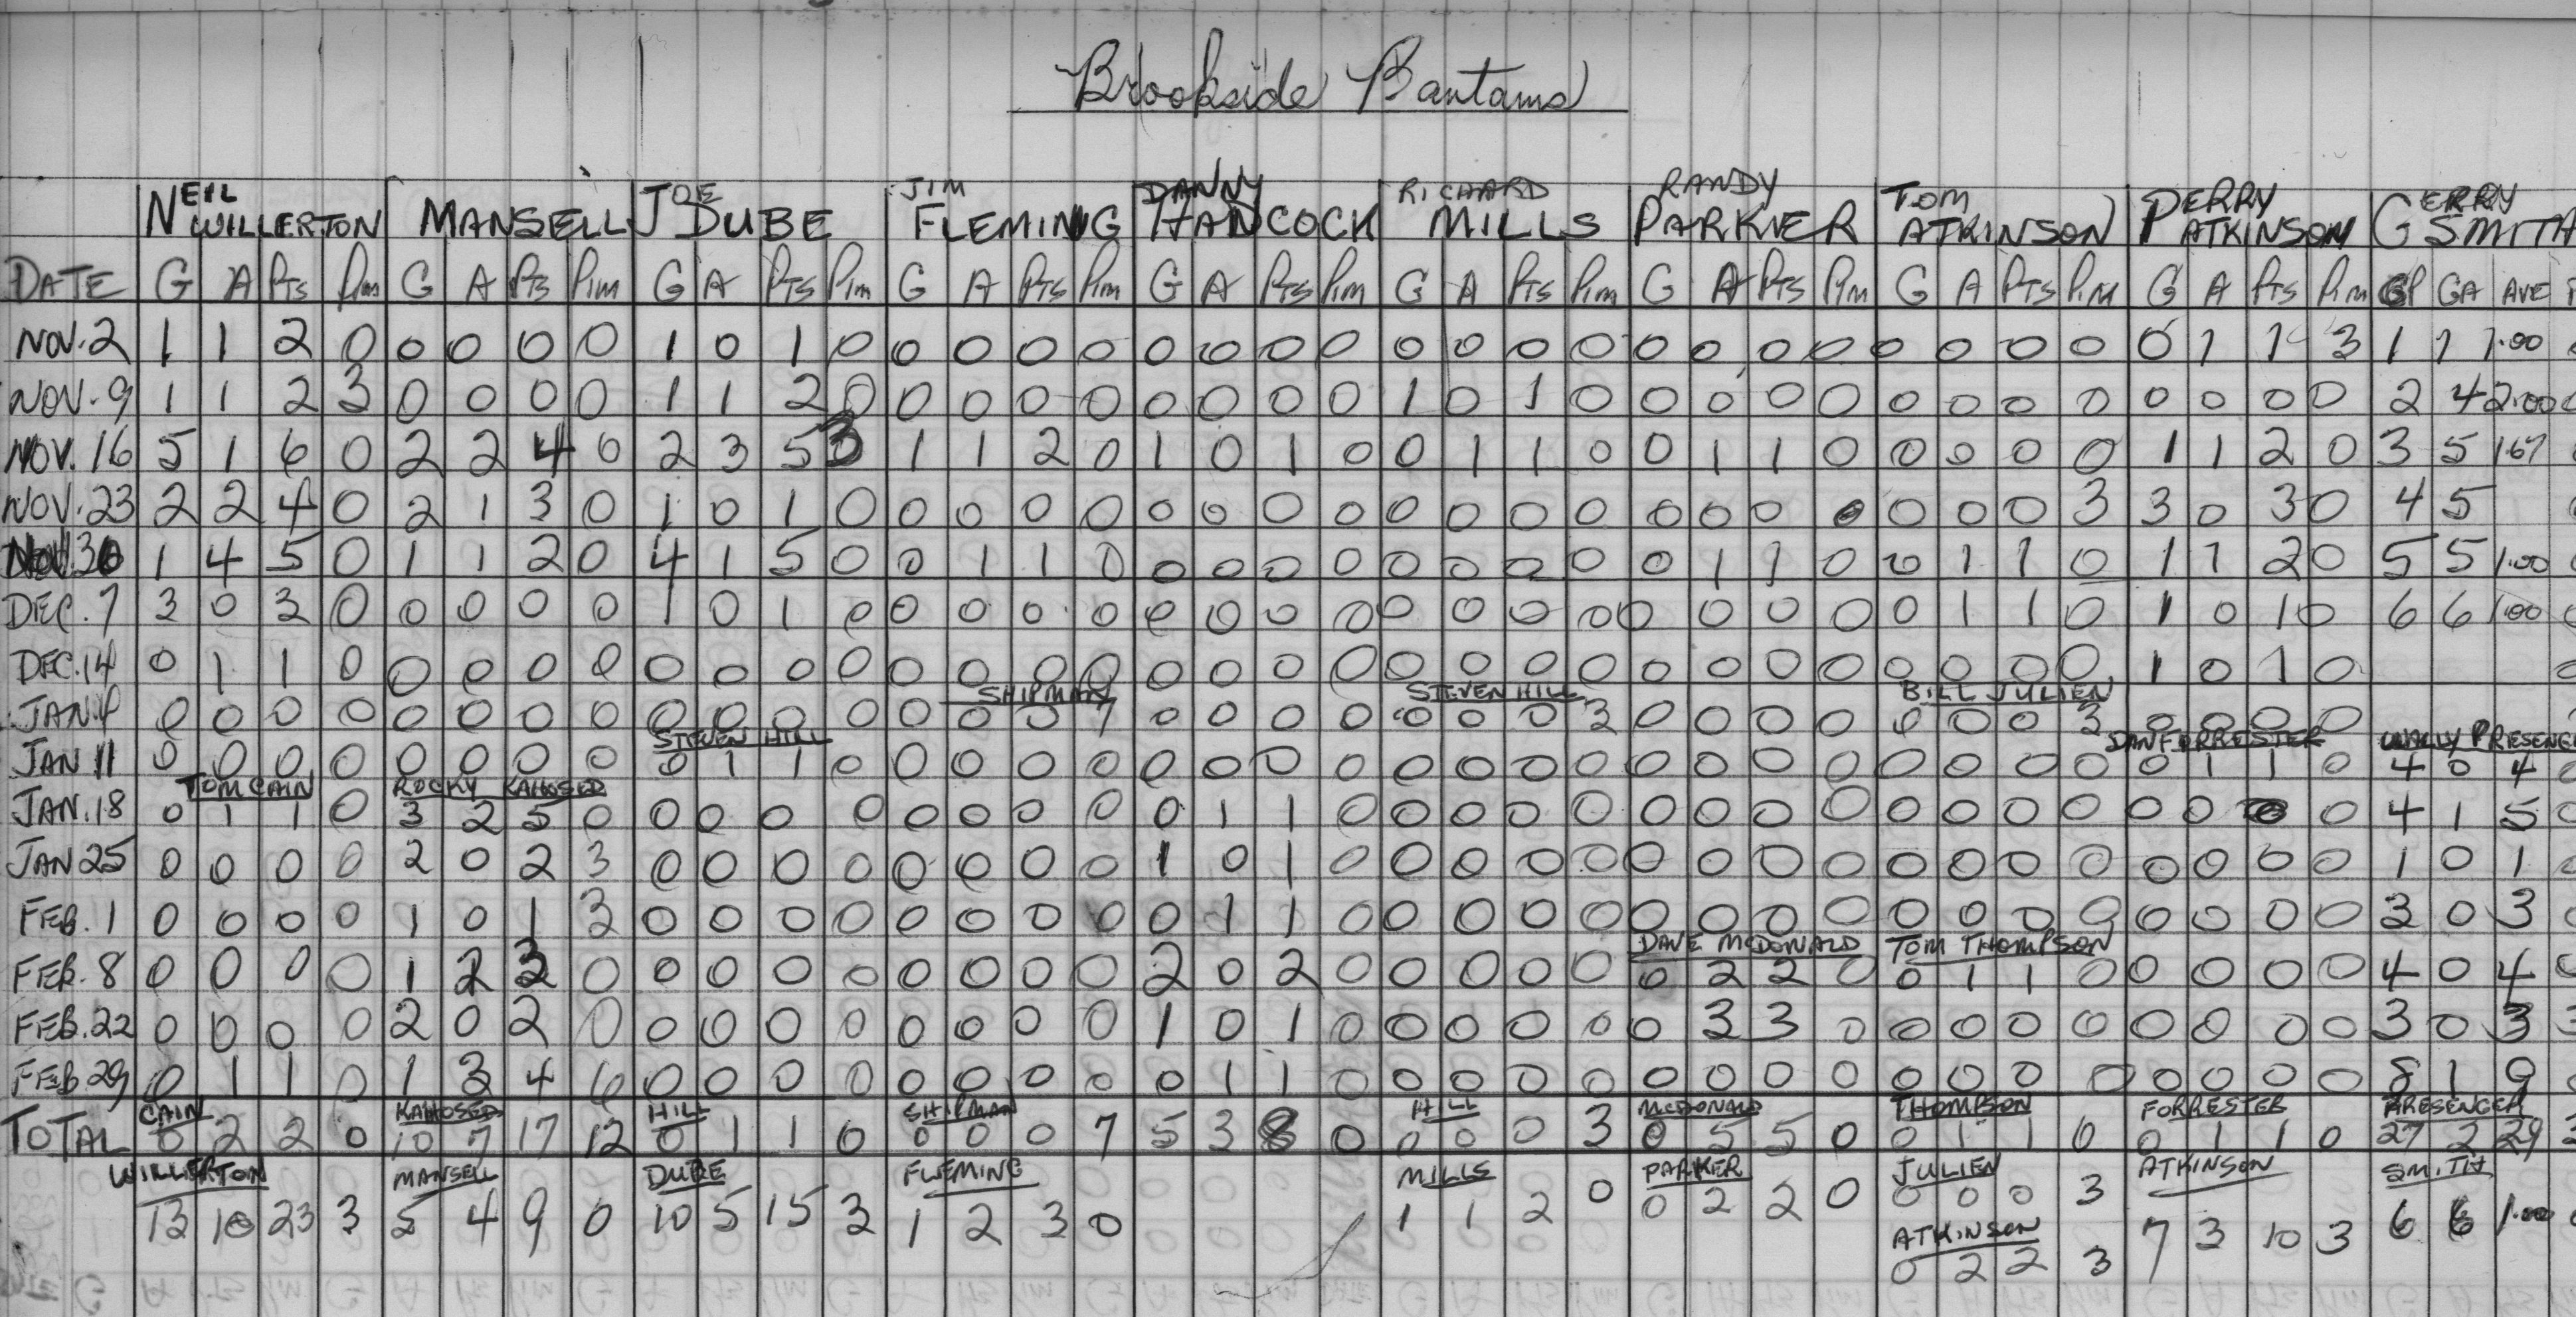 Brookside Bantams
NEIL JOE JIM DANNY RICHARD RANDY TOM PERRY GERRY
WILLERTON MANSELL DUBE FLEMING HANCOCK MILLS PARKER ATKINSON ATKINSON SMITH
DATE G A Pts Pim G A Pts Pim G A PTS Pim G A Pts Pim G A Pts Pim G A Pts Pim G A Pts Pim G A PTS P.M G A Pts Pim GP GA AVE
NOV. 2 1 1 2 0 0 0 0 0 1 0 1 0 0 0 0 0 0 0 0 0 0 0 0 0 0 0 0 0 0 0 0 0 0 1 1 3 1 1 1.00
NOV. 9 1 1 2 3 0 0 0 0 1 1 2 0 0 0 0 0 0 0 0 0 1 0 1 0 0 0 0 0 0 0 0 0 0 0 0 0 2 4 2.00
NOV. 16 5 1 6 0 2 2 4 0 2 3 5 3 1 1 2 0 1 0 1 0 0 1 1 0 0 1 1 0 0 0 0 0 1 1 2 0 3 5 1.67
NOV. 23 2 2 4 0 2 1 3 0 1 0 1 0 0 0 0 0 0 0 0 0 0 0 0 0 0 0 0 0 0 0 0 3 3 0 3 0 4 5
NOV. 30 1 4 5 0 1 1 2 0 4 1 5 0 0 1 1 0 0 0 0 0 0 0 0 0 0 1 1 0 0 1 1 0 1 1 2 0 5 5 1.00
DEC. 7 3 0 3 0 0 0 0 0 1 0 1 0 0 0 0 0 0 0 0 0 0 0 0 0 0 0 0 0 0 1 1 0 1 0 1 0 6 6 1.00
DEC. 14 0 1 1 0 0 0 0 0 0 0 0 0 0 0 0 0 0 0 0 0 0 0 0 0 0 0 0 0 0 0 0 0 1 0 1 0
SHIPMAN STEVEN HILL BILL JULIEN
JAN. 4 0 0 0 0 0 0 0 0 0 0 0 0 0 0 0 7 0 0 0 0 0 0 0 3 0 0 0 0 0 0 0 3 0 0 0 0
STEVEN HILL DAN FORRESTER WALLY PRESENGE
JAN 11 0 0 0 0 0 0 0 0 0 1 1 0 0 0 0 0 0 0 0 0 0 0 0 0 0 0 0 0 0 0 0 0 0 1 1 0 4 0 4
TOM CAIN ROCKY KAHOSED
JAN. 18 0 1 1 0 3 2 5 0 0 0 0 0 0 0 0 0 0 1 1 0 0 0 0 0 0 0 0 0 0 0 0 0 0 0 0 0 4 1 5
JAN 25 0 0 0 0 2 0 2 3 0 0 0 0 0 0 0 0 1 0 1 0 0 0 0 0 0 0 0 0 0 0 0 0 0 0 0 0 1 0 1
FEB. 1 0 0 0 0 1 0 1 3 0 0 0 0 0 0 0 0 0 1 1 0 0 0 0 0 0 0 0 0 0 0 0 0 0 0 0 0 3 0 3
DAVE MCDONALD TOM THOMPSON
FEB. 8 0 0 0 0 1 2 3 0 0 0 0 0 0 0 0 0 2 0 2 0 0 0 0 0 0 2 2 0 0 1 1 0 0 0 0 0 4 0 4
FEB. 22 0 0 0 0 2 0 2 0 0 0 0 0 0 0 0 0 1 0 1 0 0 0 0 0 0 3 3 0 0 0 0 0 0 0 0 0 3 0 3
FEB 29 0 1 1 0 1 3 4 6 0 0 0 0 0 0 0 0 0 1 1 0 0 0 0 0 0 0 0 0 0 0 0 0 0 0 0 0 8 1 9
CAIN KAHOSED HILL SHIPMAN HILL MCDONALD THOMPSON FORRESTER PRESENGER
TOTAL 0 2 2 0 10 7 17 12 0 1 1 0 0 0 0 7 5 3 8 0 0 0 0 3 0 5 5 0 0 1 1 0 0 1 1 0 27 2 29
WILLERTON MANSELL DUBE FLEMING MILLS PARKER JULIEN ATKINSON SMITH
13 10 23 3 5 4 9 0 10 5 15 3 1 2 3 0 1 1 2 0 0 2 2 0 0 0 0 3 7 3 10 3 6 6 1.00
ATKINSON
0 2 2 3